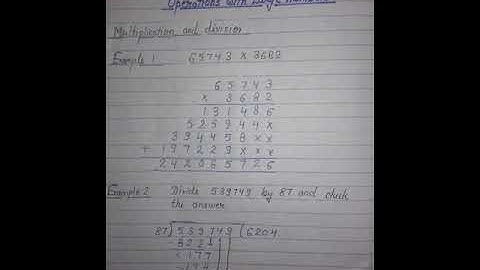 Operations with Large Numbers
Multiplication and division
Example 1 65743 x 3682
65743
x 3682
131486
525944x
394458xx
+ 197229xxx
242065726
Example 2 Divide 539749 by 87 and check
the answer
87) 539749 (6204
- 522
x 177
- 174